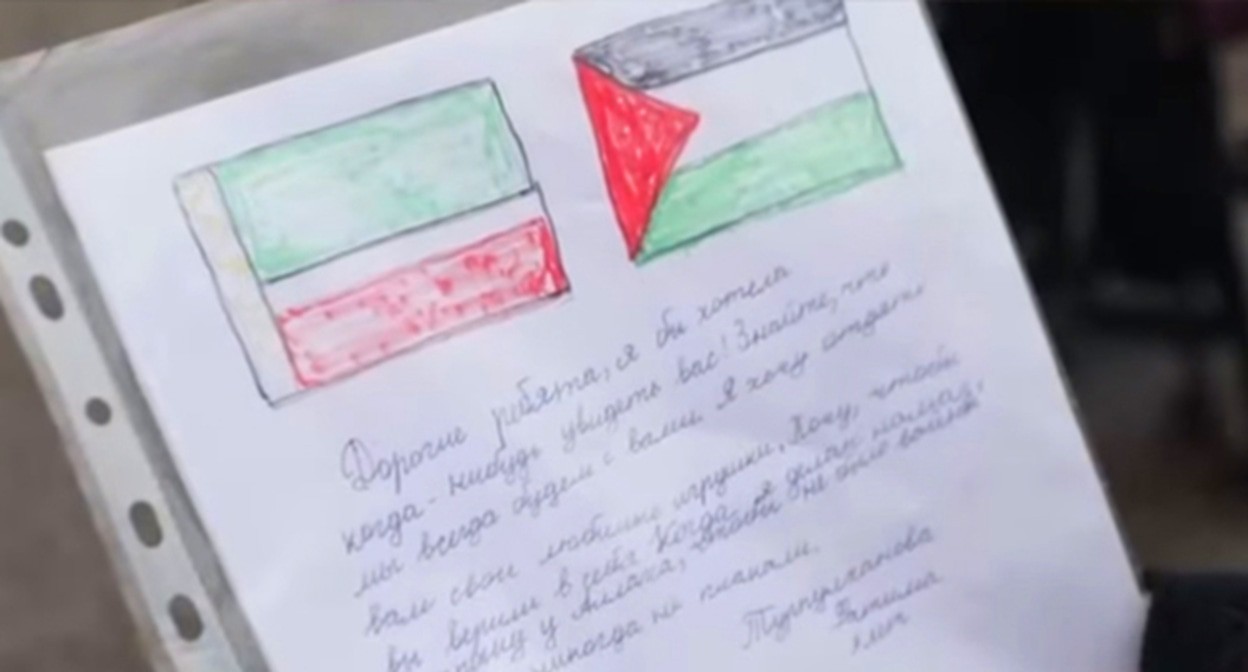 Дорогие ребята, я бы хотела
когда-нибудь увидеть вас! Знайте, что
мы всегда будем с вами. Я хочу отдать
вам свои любимые игрушки. Хочу, чтобы
вы верили в себя. Когда я делаю намаз,
прошу у Аллаха, чтобы не было войны
никогда не плакали.
Турпулханова
Fатима
лет